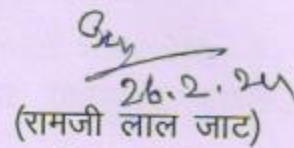 26.2.24
(रामजी लाल जाट)